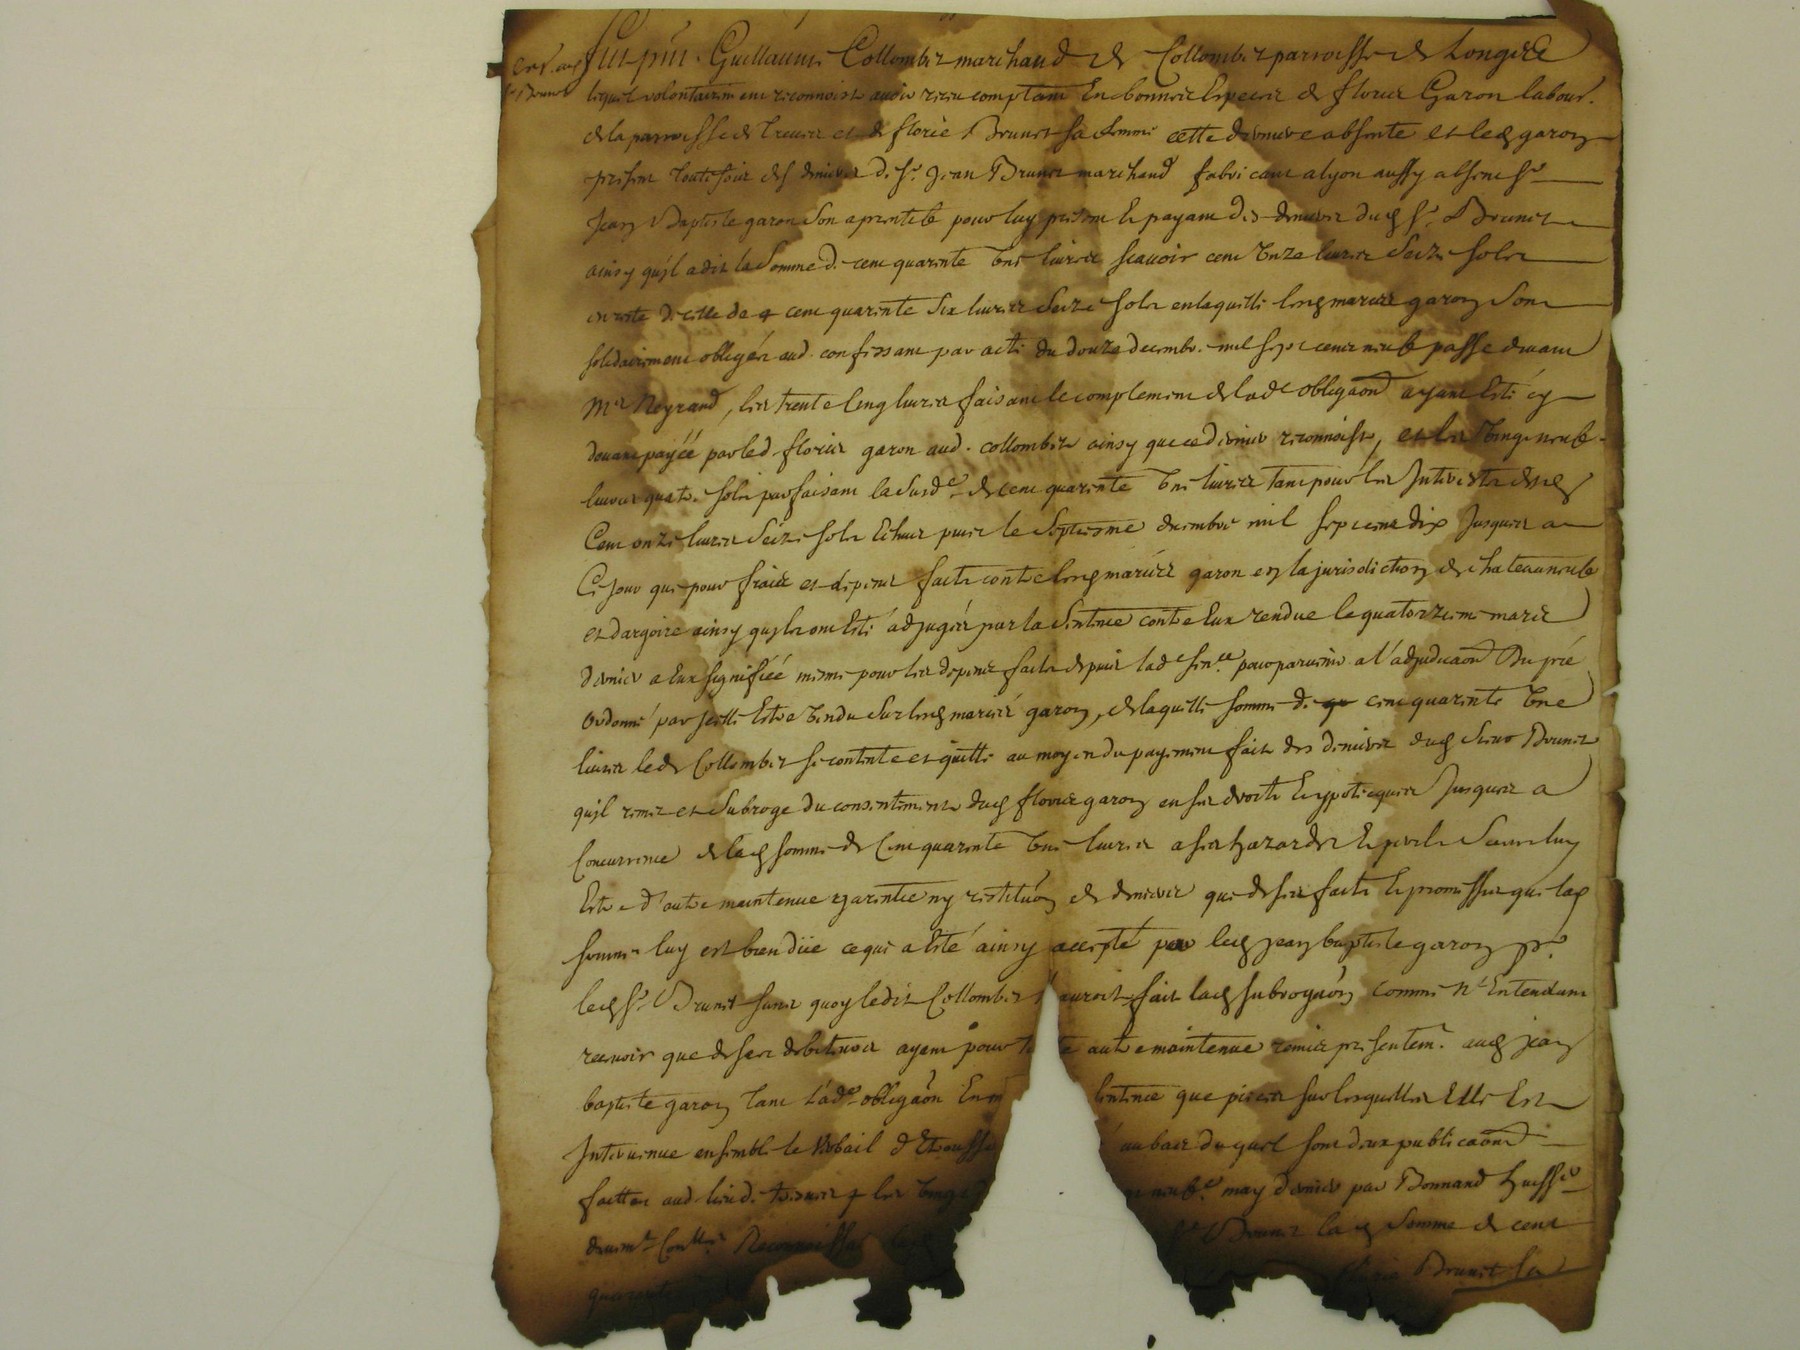 Fut pnt Guillaume Collombet marchand de Collombet parroisse de Longere
lequel volontairement reconnoist avoir receu comptant En bonnes Especes de fleurie Garon labour.
de la parroisse de Treues et de florie Brunet sa femme cette derniere absente et led garon
present toutefois des deniers de sr. Jean Brunet marchand fabricant a lyon aussy absent sr
Jean Baptiste garon son aprentif pour luy present Et payant des deniers dud sr. Brunet
ainsy qu'jl a dit la Somme de cent quarente Une livres scavoir cent Onze livres Seize sols
en reste de celle de cent quarente Six livres Seize sols en laquelle lesd mariez garon Sont
solidairement obligés aud. confessant par acte du douze decembr. mil sept cents neuf passe devant
Me Reyrand, les trente Cinq livres faisant le complement de lade obligaon ayant Esté cy
devant payéé par led florie garon aud. collombet ainsy que ce dernier reconnoist, et les Vingt neuf
livres quatr. sols parfaisant la susde de cent quarente Une livres tant pour les Interests desd
Cent onze livres Seize sols Echus puis le Septiesme decembre mil sept cent dix Jusques a
Ce jour que pour fraix et depens faits contre lesd mariéz garon en la jurisdiction de chateauneuf
et dargoire ainsy qu'jls ont Esté adjugés par la Sentence contre Eux rendue le quatorzieme mars
dernier a Eux signifiéé mesme pour les depens faits depuis lade sence pour parvenir a l'adjudicaon Du pré
Ordonné par jcelle Estre Vendu Sur lesd mariéz garon, de laquelle somme de cent quarente Une
livres led Collombet se contente et quitte au moyen du payement fait des deniers dud Sieur Brunet
qu'jl remet et Subroge du consentement dud fleurie garon en ses droits Et ypoteques Jusques a
Concurrence de lad somme de Cent quarente Une livres a ses hazardes Et perils Sans luy
Estre d'autre maintenue garentie ny restituon de deniers que de ses faits Et promesses que lad
somme luy est bien düe ce qui a Esté ainsy accepté par led jean baptiste garon pr.
led sr. Brunet sans quoy ledit Collombet n'auroit fait lad subrogaon comme n'Entendant
recevoir que de ses debiteurs ayant pour autre maintenue remis presentemt. aud jean
baptiste garon tant lade obligaon Sentence que pieces sur lesquelles Elle Est
Intervenue ensemble le Verbail d'Etrousse au bas duquel sont deux publicaons
faittes aud lieu de treuves les vingt may dernier par Bonnand huissier
Reconnoissant Brunet lad Somme de cent
quarente Brunet sa